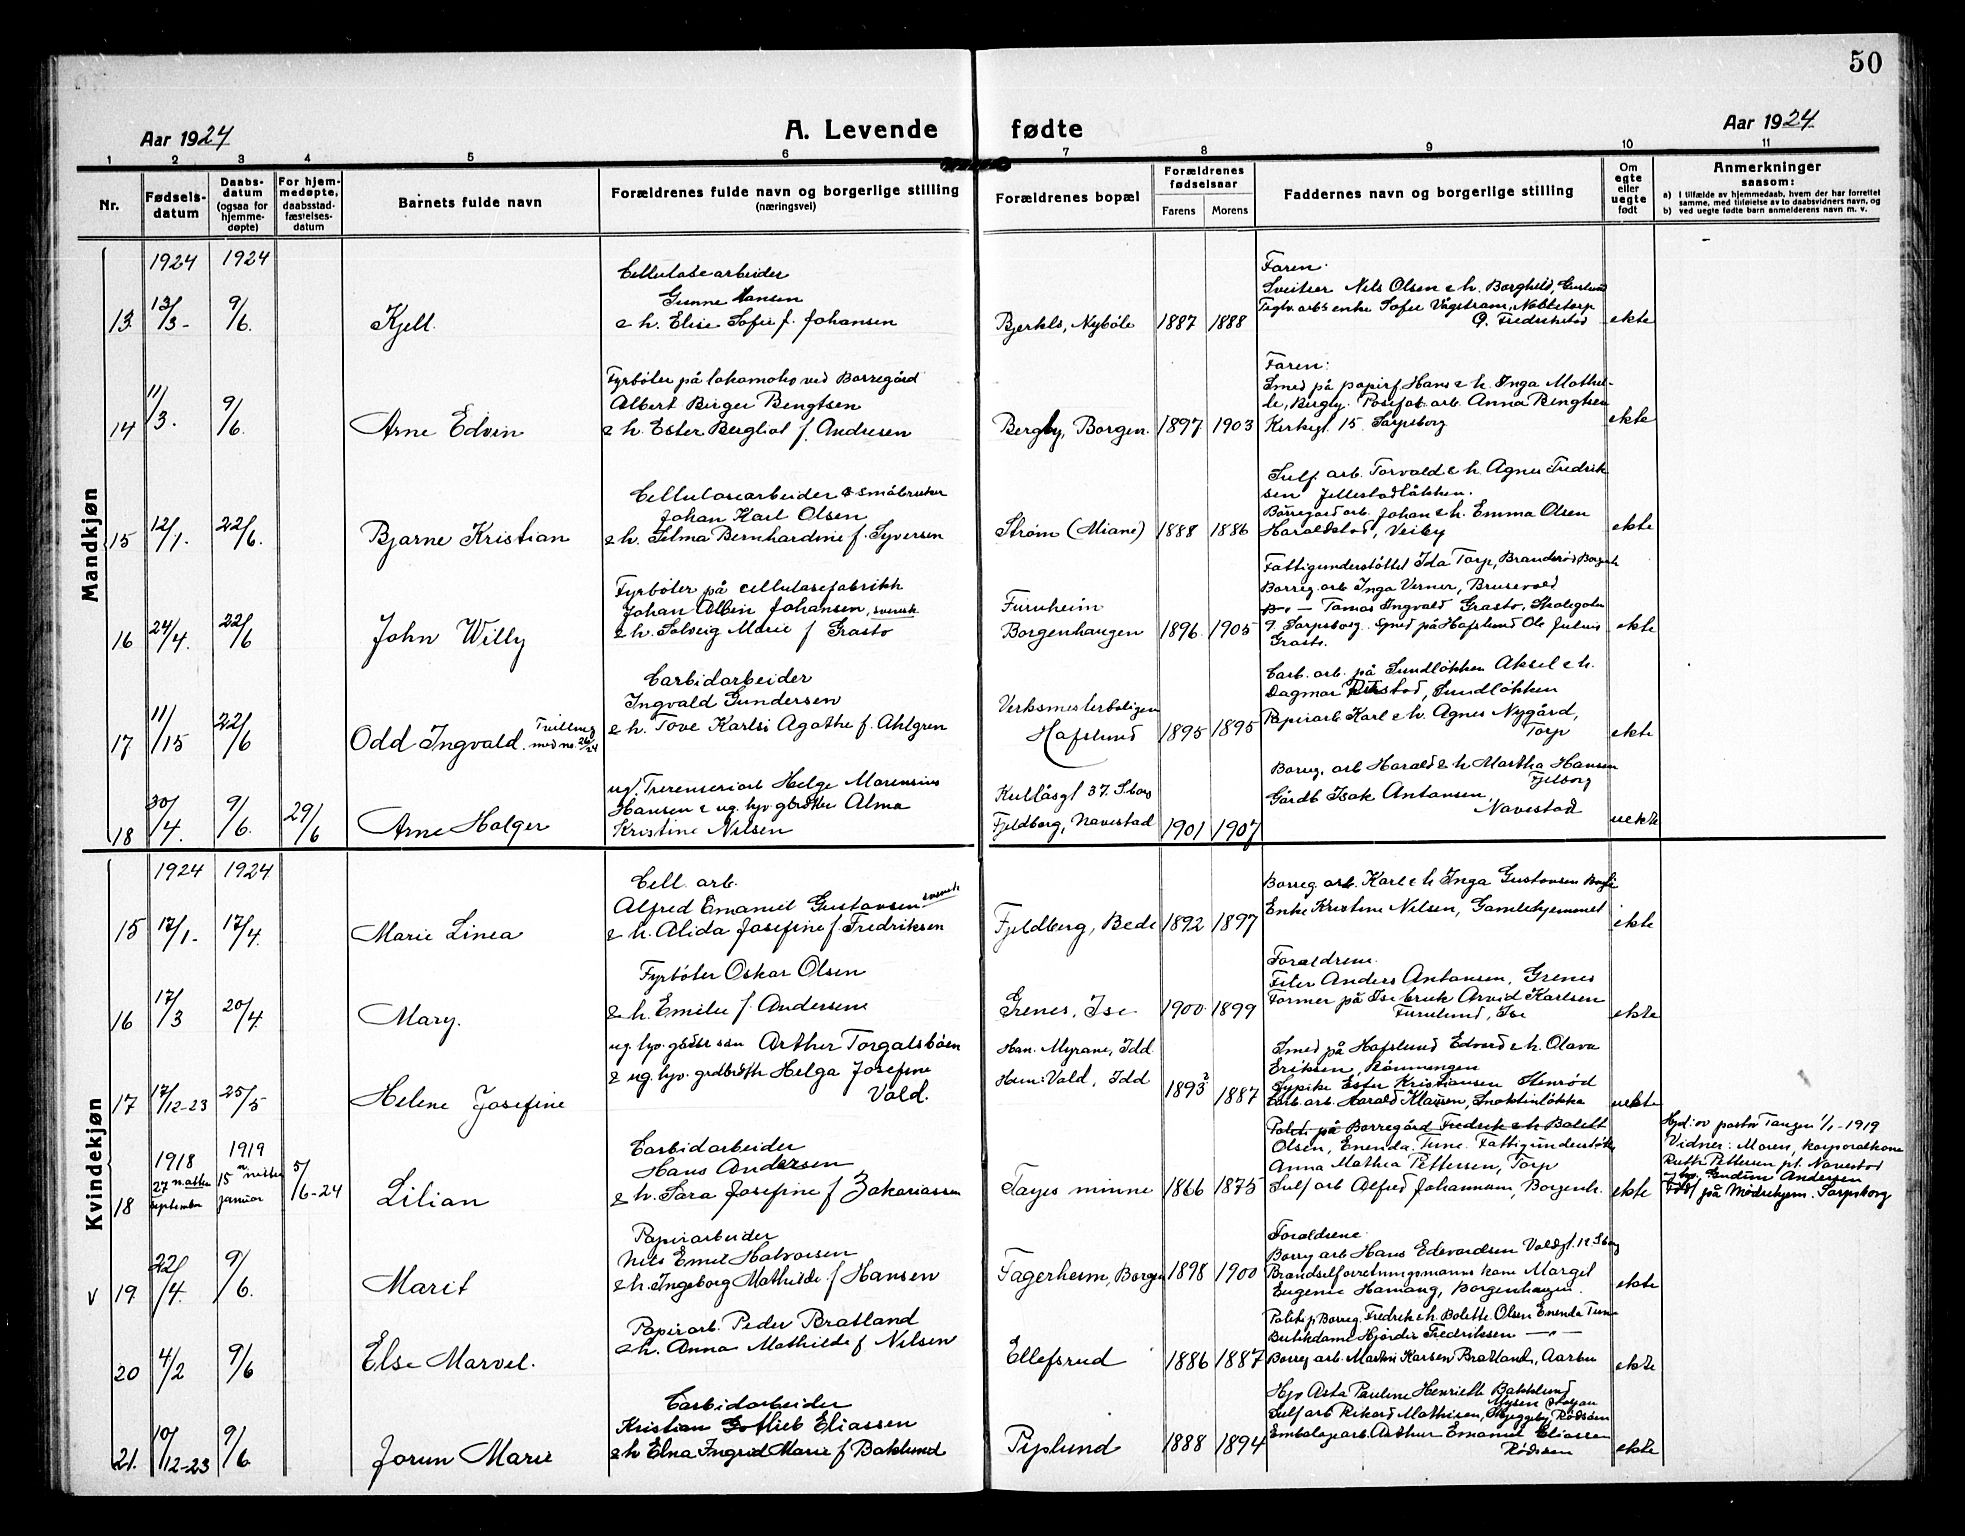 50
Aar 1924 A. Levende fødte Aar 1924
1 2 3 4 5 6 7 8 9 10 11
Nr.
Fødsels-
datum
Daabs-
datum
(ogsaa for
hjemme-
døpte)
For hjem-
medøpte,
daabsstad-
fæstelses-
datum
Barnets fulde navn
Forældrenes fulde navn og borgerlige stilling
(næringsvei)
Forældrenes bopæl
Forældrenes
fødselsaar
Farens Morens
Faddernes navn og borgerlige stilling
Om
egte
eller
uegte
født
Anmerkninger
saasom:
a) I tilfælde av hjemmedaab, hvem der har forrettet
samme, med tilføielse av to daabsvidners navn, og
b) ved uegte fødte barn anmelderens navn m. v.
Mandkjøn
1924 1924
13 13/3- 9/6. Kjell.
Cellulosearbeider
Gunne Hansen
& h. Elise Sofie f. Johansen
1887 1888
Faren.
Sveitser Nils Olsen & h. Borghild,
enke Sofie
Fredrikstad
ekte
14 11/3. 9/6. Arne Edvin
Fyrbøter på lokomotiv ved Borregård
Albert Birger Bengtsen
& h. Ester Bergliot f. Andresen
Bergby, Borgen. 1897 1903
Faren:
Smed på papirf Hans & h. Inga Mathil-
de, Bergby. arb. Anna Bengtsen
Kirkegt. 15 Sarpsborg
ekte
15 12/1. 22/6. Bjarne Kristian
Cellulosearbeider & småbruker
Johan Karl Olsen
& h. Selma Bernhardine f. Syversen
Strøm (Miane) 1888 1886
Sulf. arb. Torvald & h. Agnes Fredrik
sen Jellestadløkken.
Borregård arb. Johan & h. Emma Olsen
Haraldstad, Veiby
ekte
16 24/4. 22/6 John Willy
Fyrbøter på cellulosefabrikk
Johan Albin Johansen, svensk
& h. Solveig Marie f Grasto
Furuheim
Borgenhaugen 1896. 1905
Fattigunderstøttet Ida Torp,
Borreg. arb Inga Verner, Brusevold
Tomas Ingvald Grasto, Skolegaten
9. Sarpsborg. Smed på Hafslund Ole Julius
Grasto.
ekte
17 11/15 22/6 Odd Ingvald. Tvilling
med no. 26/24
Carbidarbeider
Ingvald Gundersen
& h. Tove Karlsi Agathe f. Ahlgren
Verksmesterboligen
Hafslund 1895 1895
Carb. arb. på Sundløkken Aksel & h.
Dagmar Sundløkken
Papirarb Karl & h. Agnes Nygård,
Torp
ekte
18 30/4. 9/6. 29/6 Arne Holger
ug. Helge Marensius
Hansen & ug. Alma
Kristine Nilsen
37. Sborg
Fjeldborg, Navestad 1901 1907
Borreg. arb Harald & h Martha Hansen
Fjelborg
Gårdb Isak Antonsen
Navestad
uekte
Kvindekjøn
1924 1924
15 17/1- 17/4. Marie Linea
Cell. arb.
Alfred Emanuel Gustavsen svensk
& h. Alida Josefine f. Fredriksen
Fjeldberg, Bede 1892 1897
Borreg. arb. Karl & h Inga Gustavsen
Enke Kristine Nilsen, Gamlehjemmet
ekte
16 17/3 20/4. Mary.
Fyrbøter Oskar Olsen
& h. Emilie f. Andersen
Grenes, Ise 1900. 1899
Foreldrene.
Anders Antonsen, Grenes
Former på Ise bruk Arvid Karlsen
Furulund, Ise
ekte
17 17/12-23 25/5 Helene Josefine
ug. Arthur Torgalsbøen
& ug. Helga Josefine
Vold.
Han. Myrane, Idd
Hun: Vold, Idd
1893 1887
Smed på Hafslund Edvard & h. Olava
Eriksen,
Ester Kristiansen
Carb. arb. Harald
uekte
18 1918
27 september
1919
15 januar
5/6-24 Lilian
Carbidarbeider
Hans Andersen
& h. Sara Josefine f Zakariassen
Tajes minne 1866 1875
Politi på Borregård Fredrik & h Bolett
Olsen, Enenda, Tune. Fattigunderstøtt
Anna Mathea Pettersen, Torp
Sulf arb Alfred Johannsen, Borgenh.
ekte
Hjd: av pastor Tangen 1/1-1919
Vidner: Moren, korporalkone
Ruth Pettersen pt. Navestad
Andersen
Født på Mødrehjem. Sarpsborg
v 19. 22/4. 9/6. Marit
Papirarbeider
Nils Emil Halvorsen
& h. Ingeborg Mathilde f Hansen
Fagerheim, Borgen 1898 1900
Foreldrene
Borreg arb Hans Edvardsen
kone Margit
Eugenie Hamang, Borgenhaugen.
ekte
20 4/2 9/6 Else Marvel.
Papirarb. Peder Bratland
& h. Anna Mathilde f Nilsen
Ellefsrud 1886 1887
Politi p Borreg. Fredrik & h. Bolette Olsen Enenda Tune
Butikdame Hjørdis Fredriksen — " —
Borreg arb. Martin Karsen Bratland, Aarbu
ekte
21. 10/12-23 9/6 Jorun Marie
Carbidarbeider
Kristian Gotlieb Eliassen
& h Elna Ingrid Marie f Baklund
1888 1894
Asta Pauline Henriette Bakklund
Mysen
Sulf arb Rikard Mathisen,
Embalagearb. Arthur Emanuel Eliassen
ekte